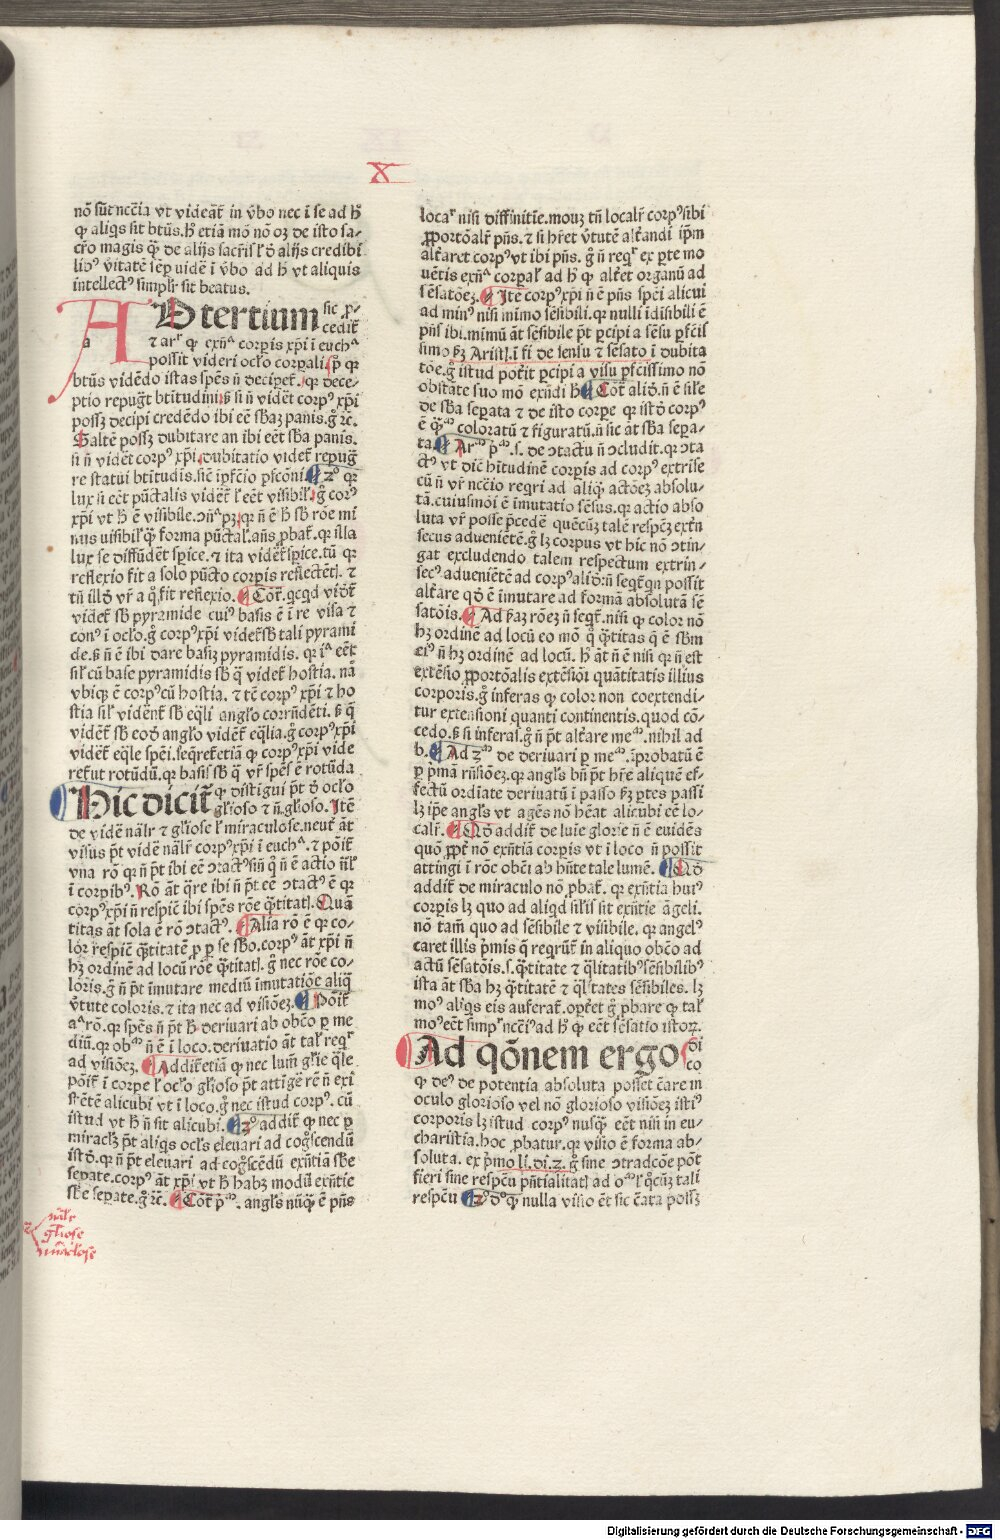 X
nō sūt nccīa vt videāt᷑ in v̄bo nec ī se ad hͦ
ꝙ aliqs sit btūs. hͦ etiā mō nō oꝫ de isto sa-
cr̄o magis qͣ de alijs sacrīs l᷑ ð alijs credibi
libꝰ vitatē sēꝑ vidē ī v̄bo ad hͦ vt aliquis
intellectꝰ simplr̄ sit beatus.
AD tertium sic p̄-
cedit᷑
a
⁊ ar᷑ ꝙ exn̄ᵃ corꝑis xp̄i ī euchᵃ
possit videri ocl̄o corꝑali. p̄ qꝛ
btūs vidēdo istas spēs n̄ deciꝑet᷑. qꝛ dece-
ptio repuḡt btitudini. ß si n̄ vidēt corpꝰ xp̄i
possꝫ decipi credēdo ibi eē sb̄aꝫ panis. gͦ ⁊c̄.
Saltē possꝫ dubitare an ibi eēt sb̄a panis.
si n̄ vidēt corpꝰ xp̄i. dubitatio videt᷑ repuḡ
re statui btitudis. sic̄ ipfc̄io pſcōni. 2ͦ qꝛ
lux si eēt pūctalis viderēt᷑ l᷑ eēt visibil᷑. gͦ corꝰ
xp̄i vt hͦ ē visibile. ꝯn̄ᵃ pꝫ. qꝛ n̄ ē hͦ sb̄ rōe mi
nus visibil᷑ qͣ forma pūctal᷑. añs ꝓbat᷑. qꝛ illa
lux se diffūdēt sp̄ice. ⁊ ita vidēt᷑ sp̄ice. tū qꝛ
reflexio fit a solo pūcto corꝑis reflectētꝭ. ⁊
tn̄ illð vr̄ a qͦ fit reflexio. Cōt᷑. qcqd vidēt᷑
videt᷑ sb̄ pyramide cuiꝰ basis ē ī re visa ⁊
conꝰ ī ocl̄o. gͦ corpꝰ xp̄i videt᷑ sb̄ tali pyrami
de. ß n̄ ē ibi dare basiꝫ pyramidis. qꝛ īᵃ eēt
sil᷑ cū base pyramidis sb̄ q̄ videt᷑ hostia. nā
vbiqꝫ ē corpꝰ cū hostia. ⁊ tē corpꝰ xp̄i ⁊ ho
stia sil᷑ vidēnt᷑ sb̄ eq̄li angl̄o corrn̄dēti. ß qͣ
vidēt᷑ sb̄ eoð angl̄o vidēt᷑ eq̄lia. gͦ corpꝰ xp̄i
vidēt᷑ eq̄le spēi. seqr̄et᷑ etiā ꝙ corpꝰ xp̄i vide
ret᷑ ut rotūdū. qꝛ basis sb̄ q̄ vr̄ spēs ē rotūda
Hic dicit᷑ ꝙ distīgui p̄t ð ocl̄o
gl̄ioso ⁊ n̄ gl̄ioso. Itē
de vidē nāl᷑r ⁊ gl̄iose l᷑ miraculose. neut᷑ āt
visus p̄t vidē nāl᷑r corpꝰ xp̄i ī euchᵃ. ⁊ pōit᷑
vna rō qꝛ n̄ p̄t ibi eē ꝯtactꝰ sin̄ qͦ n̄ ē actio nl̄l᷑
ī corpibꝰ. Rō āt qͣre ibi n̄ p̄t eē ꝯtactꝰ ē qꝛ
corpꝰ xp̄i n̄ respic̄ ibi spēs rōe qͣtitatꝭ. Quā
titas āt sola ē rō ꝯtactꝰ. Alia rō ē qꝛ co-
lor respic̄ qͣtitatē ꝓ ꝑ se sb̄o. corpꝰ āt xp̄i n̄
hꝫ ordinē ad locū rōe qͣtitatꝭ. gͦ nec rōe co-
lōris. gͦ n̄ p̄t īmutare mediū imutatiōe aliq̄
v̄tute coloris. ⁊ ita nec ad visiōeꝫ. Pōit᷑
aᵃ rō. qꝛ spēs n̄ p̄t hͦ deriuari ab obc̄o ꝑ me
diū. qꝛ obᵐ n̄ ē ī loco. deriuatio āt tal᷑ reqr᷑
ad visiōeꝫ. Addit᷑ etiā ꝙ nec lum̄ gl̄ie qͣle
pōit᷑ ī corpe l᷑ ocl̄o gl̄ioso p̄t attīge rē n̄ exi
stētē alicubi vt ī loco. gͦ nec istud corpꝰ. cū
istud vt hͦ n̄ sit alicubi. 2ͦ addit᷑ ꝙ nec ꝑ
miracl̄ꝫ p̄t aliqs ocl̄s eleuari ad cogͦscendū
istð. qꝛ n̄ p̄t eleuari ad cogͦscēdū exn̄tiā sb̄e
seꝑate. corpꝰ āt xp̄i vt hͦ habꝫ modū exn̄tie
sb̄e seꝑate. gͦ ⁊c̄. Cōt᷑ p̄ᵐ. angl̄s nūqͣ ē pn̄s
nāl᷑r
gl̄iose
miac̄lose
locar᷑ nisi diffinitīe. mouꝫ tn̄ localr᷑ corpꝰ sibi
ꝓportōal᷑r pn̄s. ⁊ si hr̄et v̄tutē alt᷑andi ip̄m
alt᷑aret corpꝰ vt ibi pn̄s. gͦ n̄ reqr᷑ ex ꝑte mo
uētis exn̄ᵃ corꝑal᷑ ad hͦ ꝙ alt᷑et organū ad
sēsatōeꝫ. Iste corpꝰ xp̄i n̄ ē pn̄s spēi alicui
ad minꝰ nisi mimo sēsibili. qꝛ nulli īdisibili ē
pn̄s ibi. mimū āt sēsibile p̄t ꝑcipi a sēsu ꝑfc̄is
simo ẜꝫ Aristl̄. ī fi de sensu ⁊ sēsato ī dubita
tōe. gͦ istud pot᷑it ꝑcipi a visu ꝑfc̄issimo nō
obstāte suo mō exn̄di hͦ. Cōt᷑ alið. n̄ ē sil᷑e
de sb̄a seꝑata ⁊ de isto corꝑe qꝛ istð corpꝰ
ē qͣᵐ coloratū ⁊ figuratū. n̄ sic āt sb̄a seꝑa-
ta. Arᵐ p̄ᵐ. s. de ꝯtactu n̄ ꝯcludit. qꝛ ꝯta
ctꝰ vt dic̄ hītudinē corꝑis ad corpꝰ extrīse
cū n̄ vr̄ nccēio reqri ad aliqͣ actōeꝫ absolu-
tā. cuiusmōi ē īmutatio sēsus. qꝛ actio abso
luta vr̄ posse p̄cedē quēcūꝫ talē respc̄ꝫ extr̄n
secus aduenīetē. gͦ lꝫ corpus vt hic nō ꝯtin-
gat excludendo talem respectum extrin-
secꝰ aduenīetē ad corpꝰ alið. n̄ seqt᷑ qn possit
alt᷑are qð ē īmutare ad formā absolutā sē
satōis. Ad ẜaꝫ rōeꝫ n̄ seqt᷑. nisi ꝙ color nō
hꝫ ordinē ad locū eo mō qͦ qͣtitas q̄ ē sb̄m
eiꝰ n̄ hꝫ ordinē ad locū. hͦ āt n̄ ē nisi qꝛ n̄ est
extēsio ꝓportōalis extēsiōi quātitatis illius
corporis. gͦ inferas ꝙ color non coextendi-
tur extensioni quanti continentis. quod cō-
cedo. ß si inferas. gͦ n̄ p̄t alt᷑are meᵐ. nihil ad
hͦ. Ad 2ᵐ de deriuari ꝑ meᵐ. īprobatū ē
ꝑ p̄mā rn̄siōeꝫ. qꝛ angl̄s bn̄ p̄t hr̄e aliquē ef-
fectū ordīate deriuatū ī passo ẜꝫ ꝑtes passi
lꝫ ip̄e angl̄s vt agēs nō hēat alicubi eē lo-
cal᷑r. Qð addit᷑ de luīe glorie n̄ ē euidēs
quō ꝓpt᷑ nō exn̄tiā corꝑis vt ī loco n̄ possit
attingi ī rōe obc̄i ab hn̄te tale lumē. Qð
addit᷑ de miraculo nō ꝓbat᷑. qꝛ exn̄tia huiꝰ
corꝑis lꝫ quo ad aliqd sil᷑is sit exn̄tie āgeli.
nō tam̄ quo ad sēsibile ⁊ visibile. qꝛ angelꝰ
caret illis p̄mis q̄ reqrūt᷑ in aliquo obc̄o ad
actū sēsatōis. s. qͣtitate ⁊ qͣlitatibꝰ sēsibilibꝰ
ista āt sb̄a hꝫ qͣtitatē ⁊ qͣlitates sēsibiles. lꝫ
moꝰ aliqs eis auferat᷑. oꝑt᷑et gͦ ꝓbare ꝙ tal᷑
moꝰ eēt simpr᷑ nccēiꝰ ad hͦ ꝙ eēt sēsatio istoꝝ.
Ad qōnem ergo di
co
ꝙ deꝰ de potentia absoluta posset c̄are in
oculo glorioso vel nō glorioso visiōeꝫ istiꝰ
corporis lꝫ istud corpꝰ nusqͣ eēt nisi in eu-
charistia. hoc ꝓbatur. qꝛ visio ē forma ab-
soluta. ex p̄mo li. di. 2. gͦ sine ꝯtradcōe pōt
fieri sine respc̄u pn̄tialitatꝭ ad oᵐ l᷑ qͦcūꝫ tali
respc̄u 2ͦ dͦ ꝙ nulla visio ēt sic c̄ata possꝫ
Digitalisierung gefördert durch die Deutsche Forschungsgemeinschaft - DFG